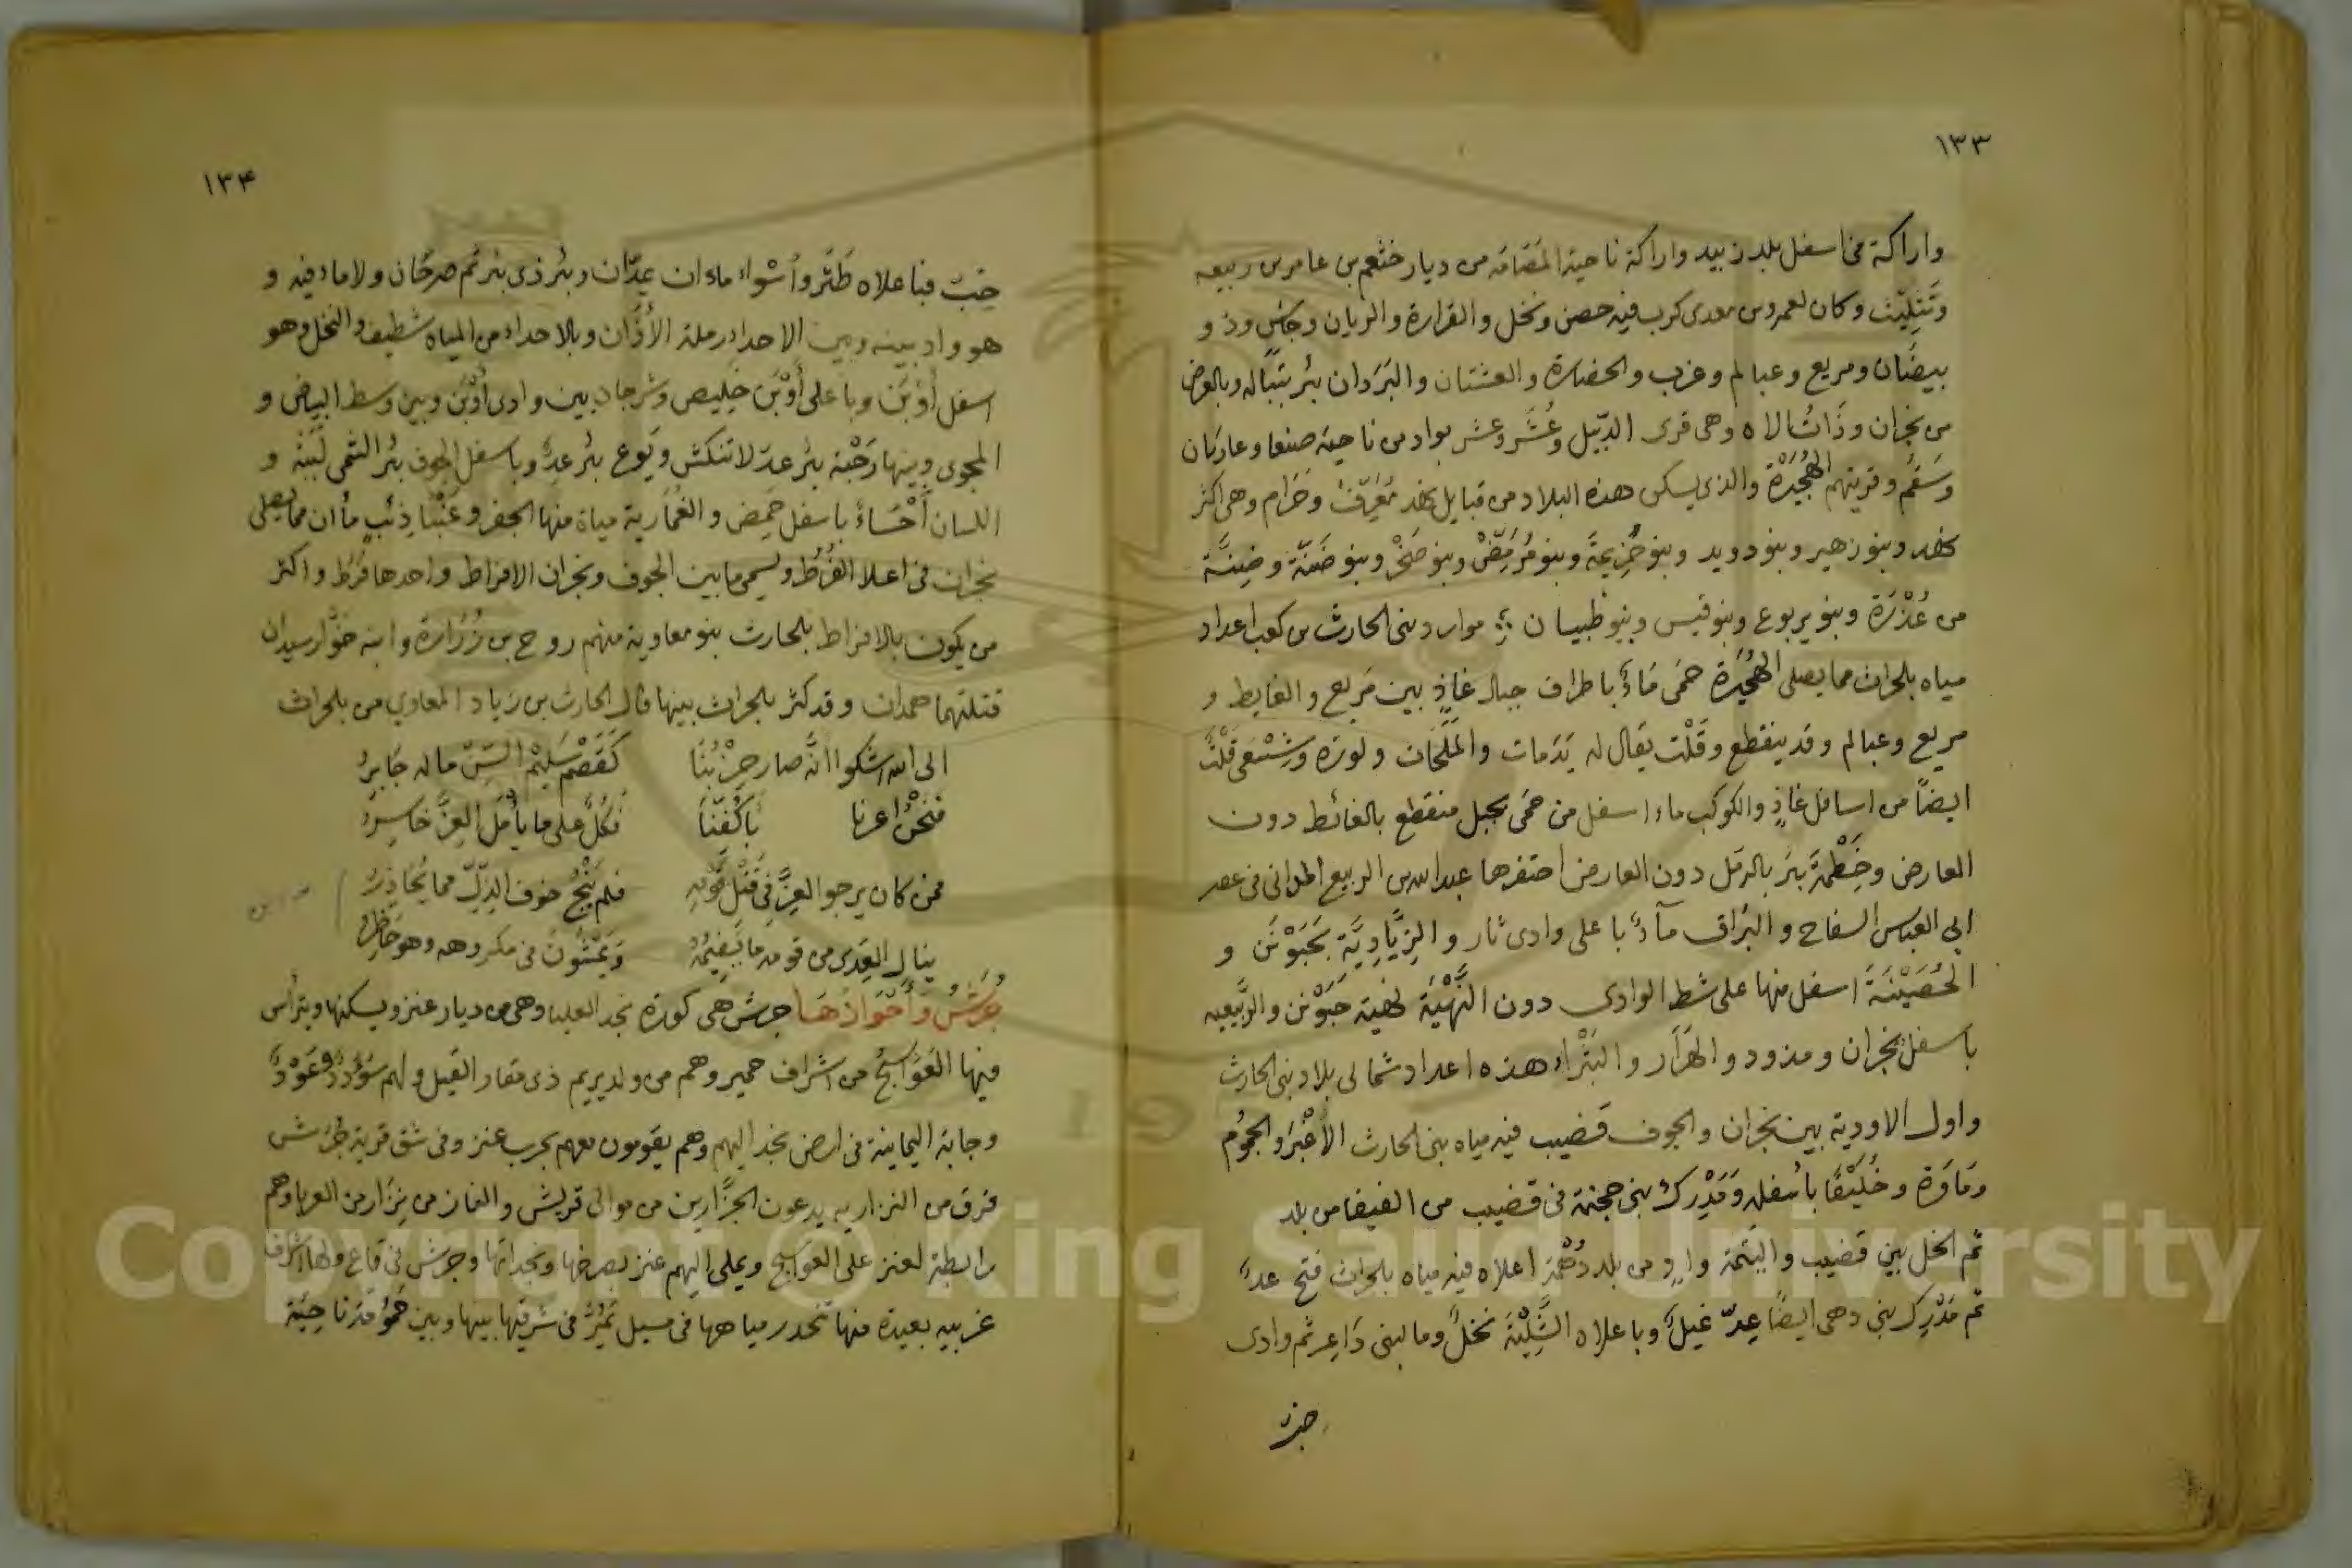 ١٣٣
واراكة من اسفل بلد زبيد واراكة ناحية المصامة من ديار خثعم بن عامر بن ربيعه
وتثليث وكان لعمرو بن معدى كرب فيه حصن ونخل والقرارة والريان وجاش وذو
بيضان ومريع وعبالم وغرب والحضارة والعشتان والبردان بئر بتباله وبالعرض
من نجران وذات الاه وهى قرى الدبيل وعشر وعشر بواد من ناحية صنعا وعاديان
وسقم وقريتهم الهجيرة والذى يسكن هذه البلاد من قبايل نهد معرف وحرام وهى اكثر
نهد وبنو زهير وبنو دويد وبنو خزيمة وبنو مرمض وبنو صخر وبنو ضنة وضنة
من عذرة وبنو يربوع وبنو قيس وبنو ظبيان موارد بنى الحارث بن كعب اعداد
مياه بلحراث مما يصلى الهجيرة حمى ماء باطراف جبال غاذ بين مريع والغايط و
مريع وعبالم وقد ينقطع وقلت يقال له يدمات والملحان ولوزه وشسعى قلت
ايضاً من اسافل غاذ والكوكب ماء اسفل من حمى بجبل منقطع بالغائط دون
العارض وخطمة بئر بالرمل دون العارض احتفرها عبد الله بن الربيع المدانى فى عصر
ابى العباس السفاح والبراق ماء باعلى وادى ثار والزيادية بحبونن و
الحصينة اسفل منها على شط الوادى دون النهية نهية حبونن والربيعيه
باسفل نجران ومذود والهرار والبثراء هذه اعداد شمالى بلاد بنى الحارث
واول الاودية بين نجران والجوف قضيب فيه مياه بنى الحارث الاغبر والجموم
وماوة وخليقا باسفله ومدرك بنى حجنة فى قضيب من الفيضا من بلد
ثم الخل بين قضيب واليتمة واد من بلد دهمة اعلاه فيه مياه بلحراث فتح عد
ثم مدرك بنى وهى ايضا عد غيل وباعلاه الشلية نخل وما لبنى داعر ثم وادى
١٣٤
خب فباعلاه طثر واشواء ماءان عدان وبئر ذى بئر ثم صرحان ولا ماء فيه و
هو واد بينه وبين الاحداء رملة الاذان وبالاحداء من المياه شطيف والنخل وهو
اسفل اوبن وباعلى اوبن خليص وشرجان بين وادى اوبن وبين وسط البياض و
المجوى وبينها رحبة بئر عد لا تنكش وبوع بئر عد وباسفل الجوف بئر التمى لبنه و
اللسان احساء باسفل حمض والغمارية مياة منها الجفر وعنبا ذئب مأان مما يصلى
نجران فى اعلا الفرط ويسمى ما بين الجوف ونجران الافراط واحدها فرط واكثر
من يكون بالافراط بلحارث بنو معاوية منهم روح بن زرارة وابنه خوار سيدان
قتلتهما همدان وقد كثر بلحراث بينها قال الحارث بن زياد المعاوي من بلحراث
الى الله اشكوا انه صار حزبنا كقصم سليم السن ماله جابر
فنحن اعرنا باكفنا نكل على ما يأمل العز خاسر
فمن كان يرجو العز فى قتل قومه فلم ينج خوف الذل مما يحاذر
ينال العدى من قومه ما يقيمه ويمشون فى مكروهه وهو حاظر
جرش واحوازها جرش هى كورة نجد العليا وهى من ديار عنز ويسكنها ويترأس
فيها العواسج من اشراف حمير وهم من ولد يريم ذى مقار القيل ولهم سؤدد وعود
وجابة اليمانية فى ارض نجد اليهم وهم يقومون معهم بحرب عنز وفى شق قرية جرش
فرق من النزاريه يدعون الجزارين من موالى قريش والغاز من نزار من العربا وهم
رابطة لعنز على العواسج ويملى اليهم عنز بصرخها ونجداتها وجرش فى قاع ولها اشراف
غربيه بعيدة منها تنحدر مياهها فى مسيل تمر فى شرقيها بينها وبين حموا قدنا حية